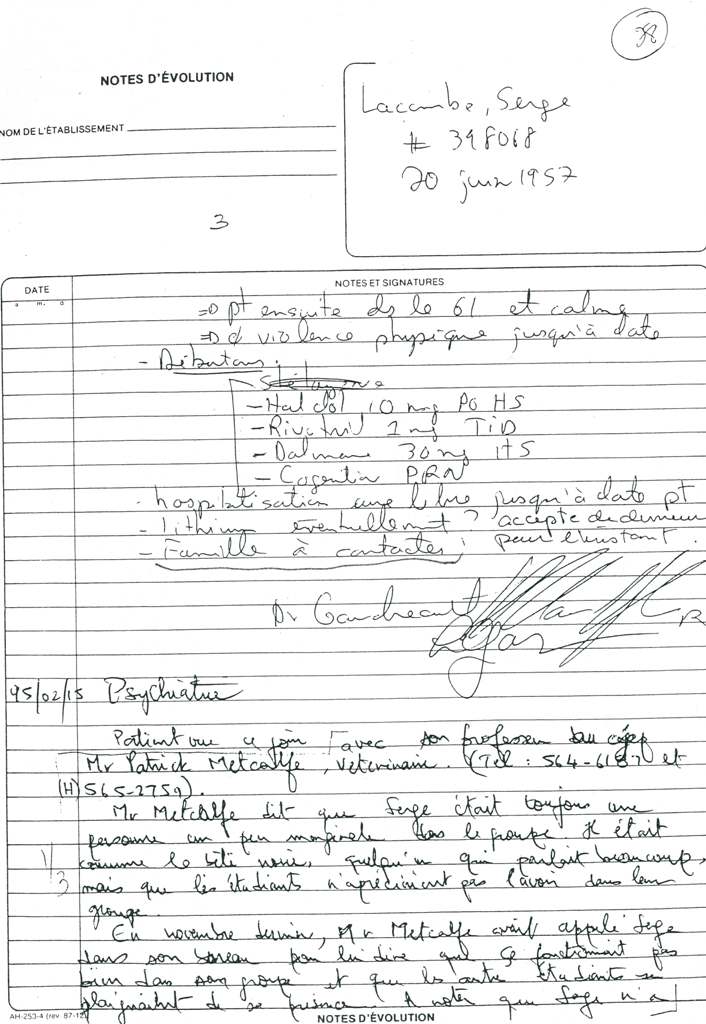 38
NOTES D'ÉVOLUTION
NOM DE L'ÉTABLISSEMENT
Lacombe, Serge
# 398068
20 juin 1957
3
DATE
NOTES ET SIGNATURES
a m. d
=> pt ensuite ds le 61 et calme
=> violence physique jusqu'à date
- Débutons :
- Haldol 10 mg PO HS
- Rivotril 2 mg TID
- Dalmane 30 mg HS
- Cogentin PRN
- hospitalisation cure libre jusqu'à date pt
- Lithium éventuellement ? accepte de demeurer
- Famille à contacter pour l'instant.
Dr Gaudreault
R
95/02/15 Psychiatrie
Patient vue ce jour avec son professeur au cégep
Mr Patrick Metcalfe, vétérinaire. (Tél : 564-6187 et
(H) 565-2759).
Mr Metcalfe dit que Serge était toujours une
personne un peu marginale dans le groupe. Il était
comme la bête noire, quelqu'un qui parlait beaucoup,
1/3
mais que les étudiants n'apréciaient pas l'avoir dans leur
groupe.
En novembre dernier, Mr Metcalfe avait appelé Serge
dans son bureau pour lui dire que ça fonctionnait pas
bien dans son groupe et que les autres étudiants se
plaignaient de sa présence. A noter que Serge n'a
AH-253-4 (rev 87-12)
NOTES D'ÉVOLUTION